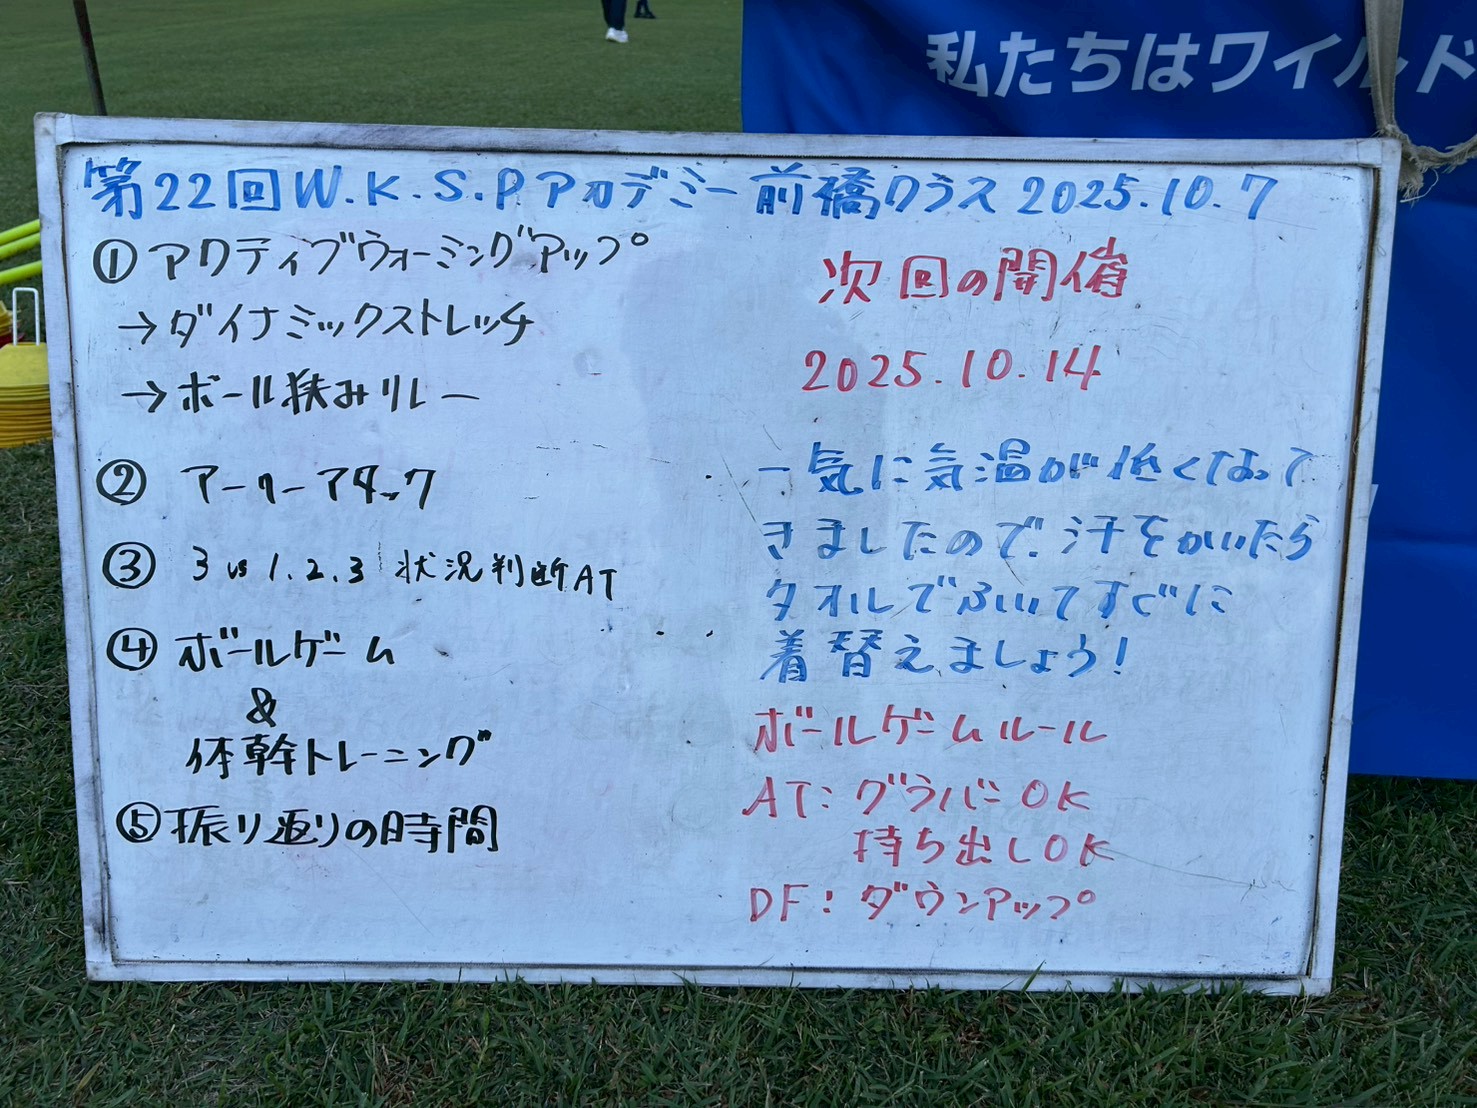 私たちはワイルド
第22回W.K.S.Pアカデミー前橋クラス 2025.10.7
①アクティブウォーミングアップ
→ダイナミックストレッチ
→ボール挟みリレー
② アーリーアタック
③ 3 vs 1.2.3 状況判断AT
④ ボールゲーム
&
体幹トレーニング
⑤振り返りの時間
次回の開催
2025.10.14
一気に気温が低くなって
きましたので、汗をかいたら
タオルでふいてすぐに
着替えましょう!
ボールゲームルール
AT:グラバーOK
持ち出しOK
DF:ダウンアップ